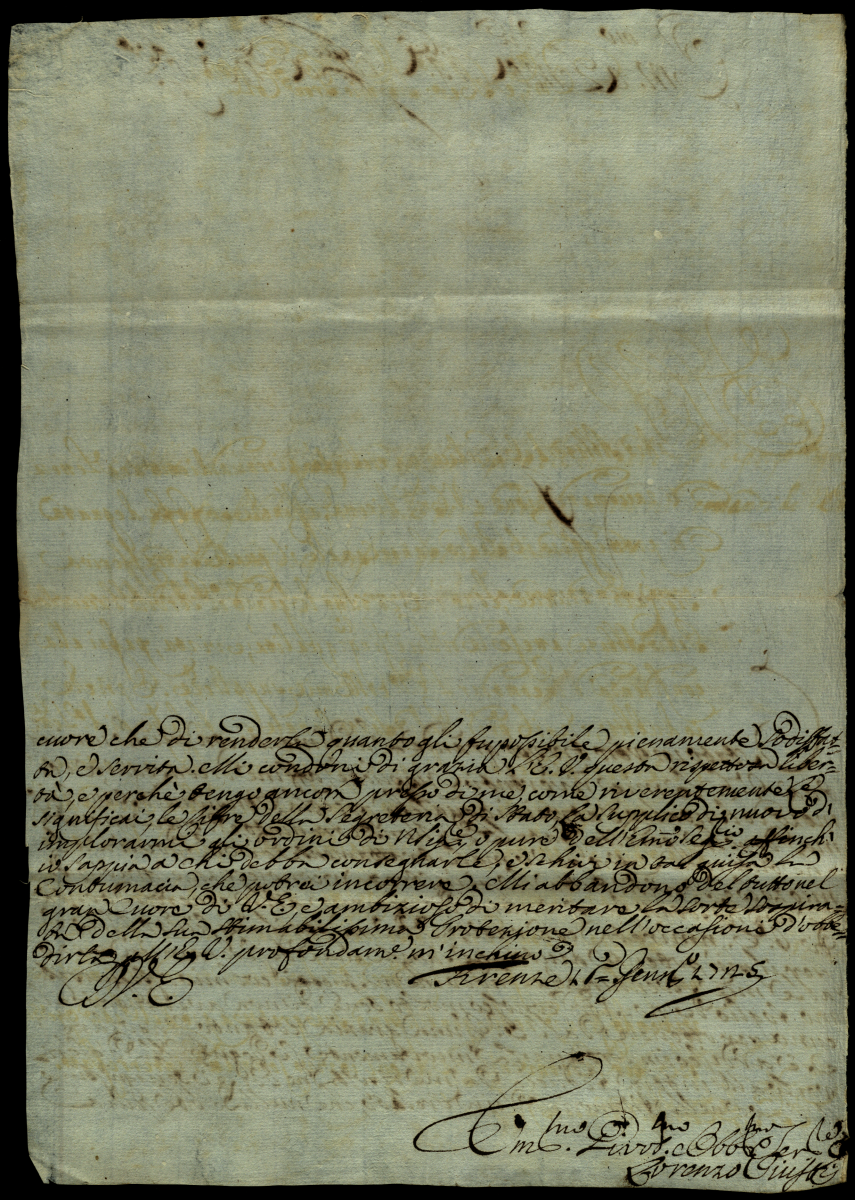 cuore che di renderla quanto gli fu possibile pienamente sodisfat-
ta, e servita. Mi condoni di grazia l'E. V. questa rispettosa liber-
tà, e perchè tengo ancora presso di me, come riverentemente le
significai, le Cifre della Segreteria di Stato, la supplico di nuovo d'
implorarmi gli ordini di N. Sig.re, o pure dell'Emo Seg.rio affinch'
io sappia a chi debba consegnarle, e schivi in tal guisa la
Contumacia, che potrei incorrere. Mi abbandono del tutto nel
gran Cuore di V. E. e ambizioso di meritare la sorte
della sua stimabilissima Protezione nell'occasione d'obbe-
dirla, all'E. V. profondam.e m'inchino
Firenze 1725
V. E.
Um.mo Div.mo e Obb.mo Ser.re
Lorenzo Giusti